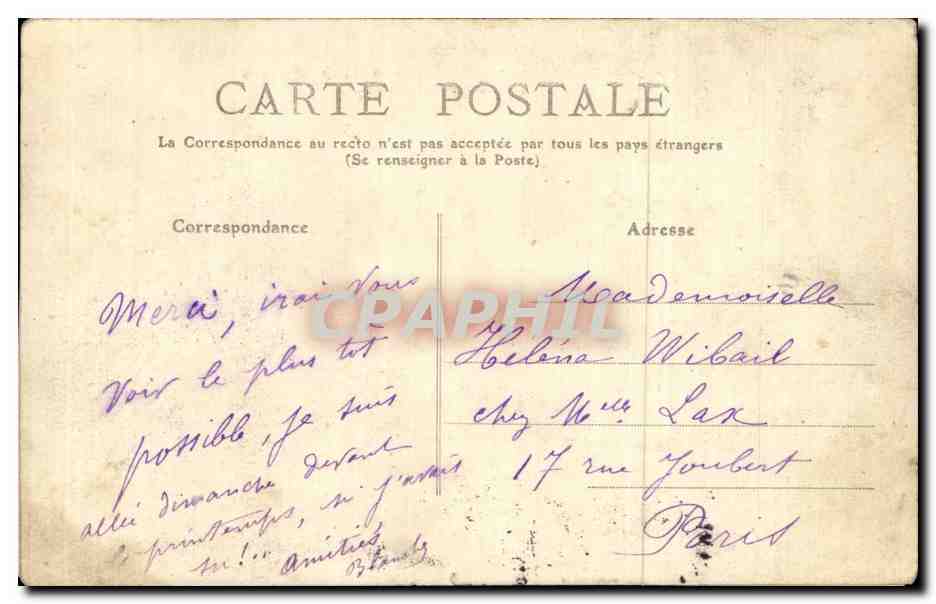 CARTE POSTALE
La Correspondance au recto n'est pas acceptée par tous les pays étrangers
(Se renseigner à la Poste)
Correspondance
Merci, irai vous
voir le plus tot
possible, je suis
allée dimanche devant
le printemps, si j'avais
su!..
amitiés
Blanche
Adresse
Mademoiselle
Heléna Wibail
chez Melle Lax
17 rue Joubert
Paris
CPAPHIL